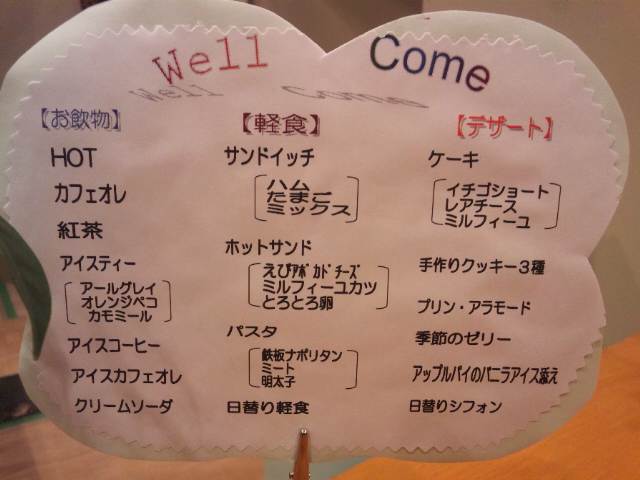 Well Come
Well Come
【お飲物】
HOT
カフェオレ
紅茶
アイスティー
アールグレイ
オレンジペコ
カモミール
アイスコーヒー
アイスカフェオレ
クリームソーダ
【軽食】
サンドイッチ
ハム
たまご
ミックス
ホットサンド
えびアボカドチーズ
ミルフィーユカツ
とろとろ卵
パスタ
鉄板ナポリタン
ミート
明太子
日替り軽食
【デザート】
ケーキ
イチゴショート
レアチース
ミルフィーユ
手作りクッキー3種
プリン・アラモード
季節のゼリー
アップルパイのバニラアイス添え
日替りシフォン